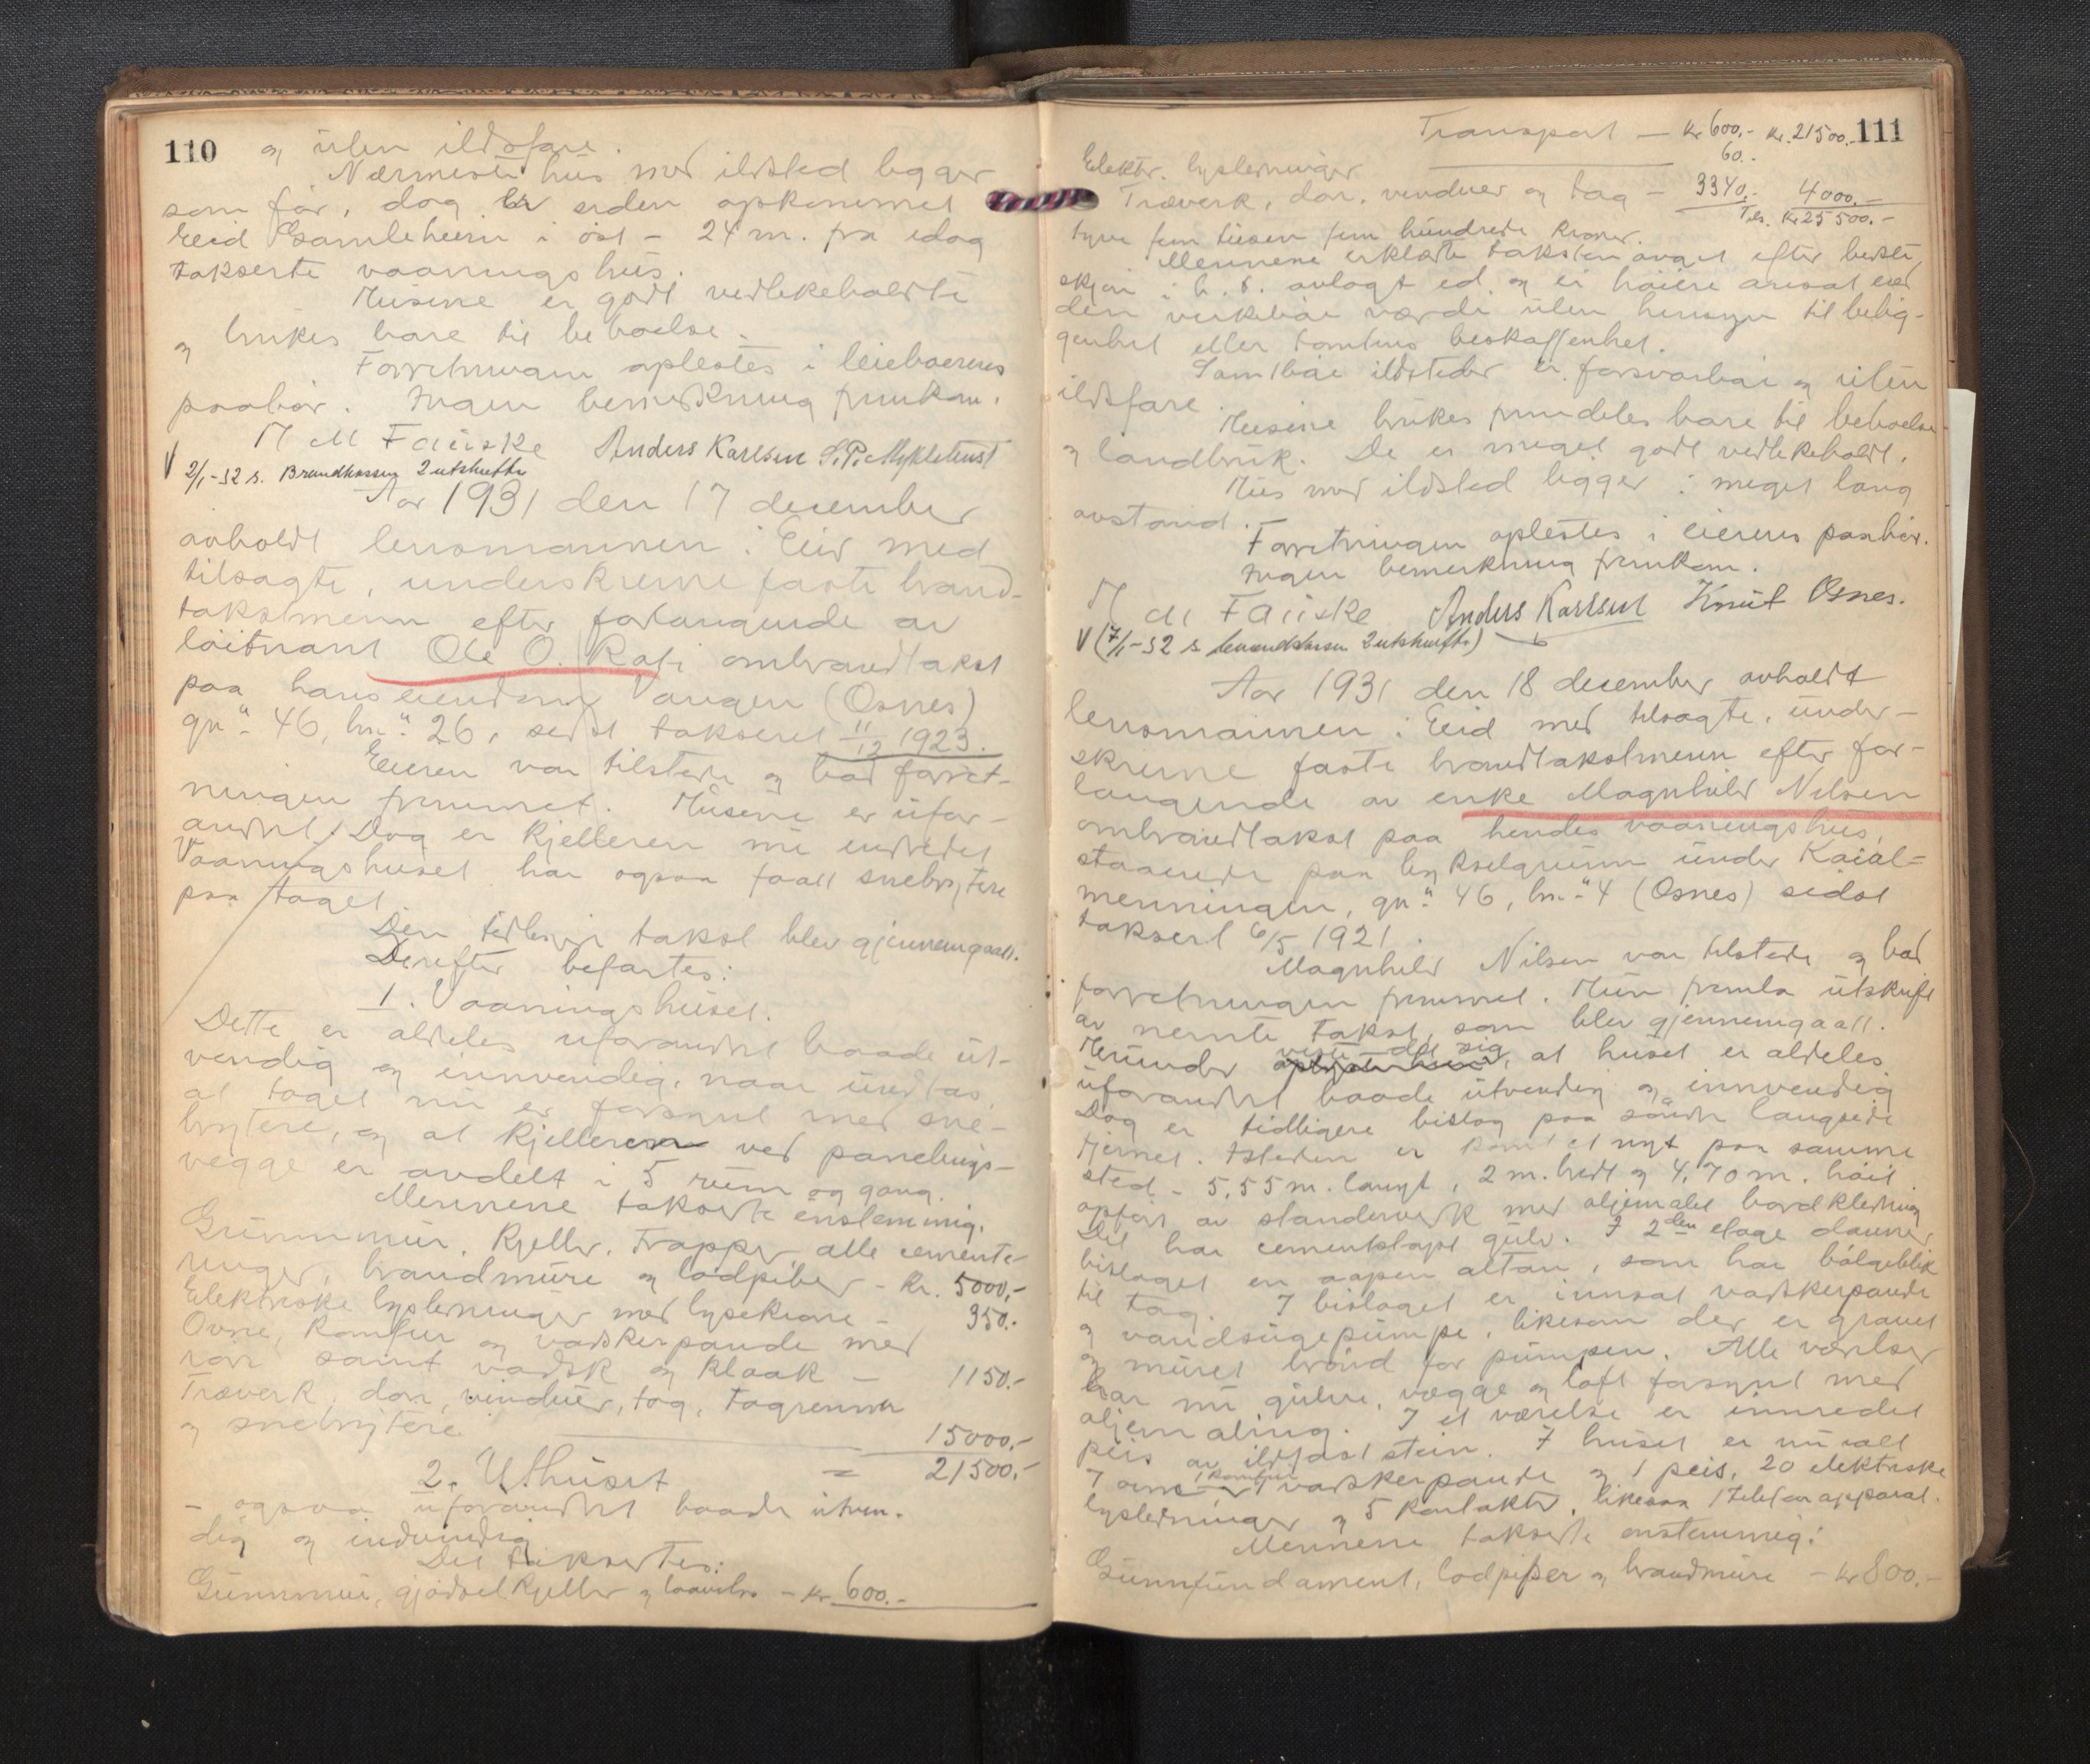 110
og uten ildsfare.
Nærmeste hus med ildsted ligger
som før, dog er siden opkommet
Eeid Gamleheim i øst - 24 m. fra idag
takserte vaaningshus.
Husene er godt vedlikeholdte
og brukes bare til beboelse.
Forretningen oplestes i leieboerens
paahør. Ingen bemerkning fremkom.
M M Fauske Anders Karlsen S. P. Myklebust
V 2/1-32 s. Brandkassen 2 utskrifter
Aar 1931 den 17 december
avholdt lensmannen i Eid med
tilsagte, underskrevne faste brand-
takstmenn efter forlangende av
løitnant Ole O. Raf: ombrandtakst
paa hans eiendom Vangen (Osnes)
gn." 46, bn." 26, sidst taksert 11/12 1923.
Eieren var tilstede og bad forret-
ningen fremmet. Husene er ufor-
andret. Dog er kjelleren nu indredet
Vaaningshuset har ogsaa faatt snebrytere
paa taget.
Den tidligere takst blev gjennemgaatt.
Derefter befartes:
1. Vaaningshuset.
Dette er aldeles uforandret baade ut-
vendig og innvendig, naar undtas,
at taget nu er forsynt med sne-
brytere, og at kjelleren ved panelings-
vegge er avdelt i 5 rum og gang.
Mennene takserte enstemmig:
Grunnmur, kjeller, trapper, alle cemente-
ringer, brandmure og lodpiber - kr. 5000,-
Elektriske lysledninger med lysekrone - 350.-
Ovne, komfur og vaskerpande med
rør samt vask og kloak - 1150.-
Træverk, dør, vinduer, tag, tagrenner
og snebrytere 15000.-
2. Uthuset = 21500.-
- ogsaa uforandret baade utven-
dig og indvendig
Det taksertes:
Grunnmur, gjødselkjeller og laavebro - kr 600.-
Transport - kr 600,- kr. 21500.- 111
Elektr. lysledninger 60.-
Træverk, dør, vinduer og tag - 3340.- 4000.-
Tils. kr 25500.-
tyve fem tusen fem hundrede kroner.
Mennene erklærte taksten avgit efter beste
skjøn i h. t. avlagt ed og ei høiere ansat end
den virkelige værdi uten hensyn til belig-
genhet eller tomtens beskaffenhet.
Samtlige ildsteder er forsvarlige og uten
ildsfare.
Husene brukes fremdeles bare til beboelse
og landbruk. De er meget godt vedlikeholdt.
Hus med ildsted ligger i meget lang
avstand.
Forretningen oplestes i eierens paahør.
Ingen bemerkning fremkom.
M M Fauske Anders Karlsen Knut Osnes.
V (7/1-32 s. brandkassen 2 utskrifter)
Aar 1931 den 18 december avholdt
lensmannen i Eid med tilsagte, under-
skrevne faste brandtakstmenn efter for-
langende av enke Magnhild Nilsen
ombrandtakst paa hendes vaaningshus,
staaende paa bykselgrunn under Kaial-
menningen, gn." 46, bn." 4 (Osnes) sidst
taksert 6/5 1921.
Magnhild Nilsen var tilstede og bad
forretningen fremmet. Hun fremla utskrift
av nevnte takst, som blev gjennemgaatt.
Herunder viste det sig, at huset er aldeles
uforandret baade utvendig og innvendig
Dog er tidligere bislag paa søndre langside
fjernet. Isteden er kommet nyt paa samme
sted - 5,55 m. langt, 2 m. bredt og 4,70 m. høit
opført av standerverk med oljemalet bordkledning
Det har cementstøpt gulv. I 2den etage danner
bislaget en aapen altan, som har bølgeblik
til tag. I bislaget er innsat vaskerpande
og vandsugepumpe, likesom der er gravet
og muret brønd for pumpen. Alle værelser
har nu gulve, vægge og loft forsynt med
oljemaling. I et værelse er innredet
peis av ildfast stein. I huset er nu ialt
7 ovne, 1 komfur, 1 vaskerpande og 1 peis, 20 elektriske
lysledninger og 5 kontakter, likesaa 1 telefonapparat.
Mennene takserte enstemmig:
Grunnfundament, lodpiper og brandmure - kr 800.-